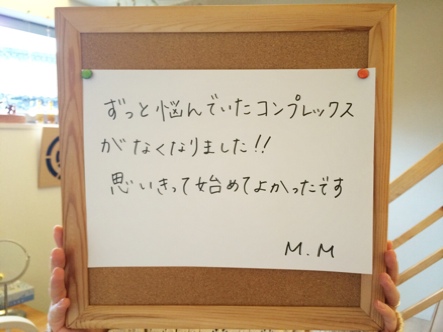 ずっと悩んでいたコンプレックス
がなくなりました!!
思いきって始めてよかったです
M.M